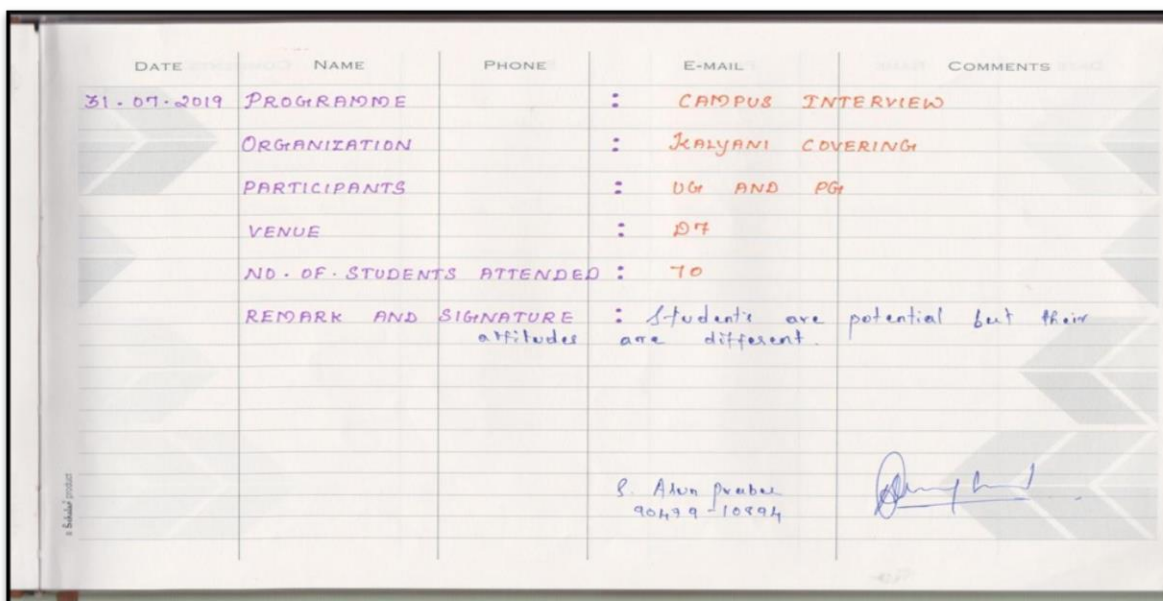 DATE NAME PHONE E-MAIL COMMENTS
31-07-2019 PROGRAMME : CAMPUS INTERVIEW
ORGANIZATION : KALYANI COVERING
PARTICIPANTS : UG AND PG
VENUE : D7
NO. OF. STUDENTS ATTENDED : 70
REMARK AND SIGNATURE : Students are potential but their
attitudes are different.
S. Arun prabu
90479-10894
a Scholar product